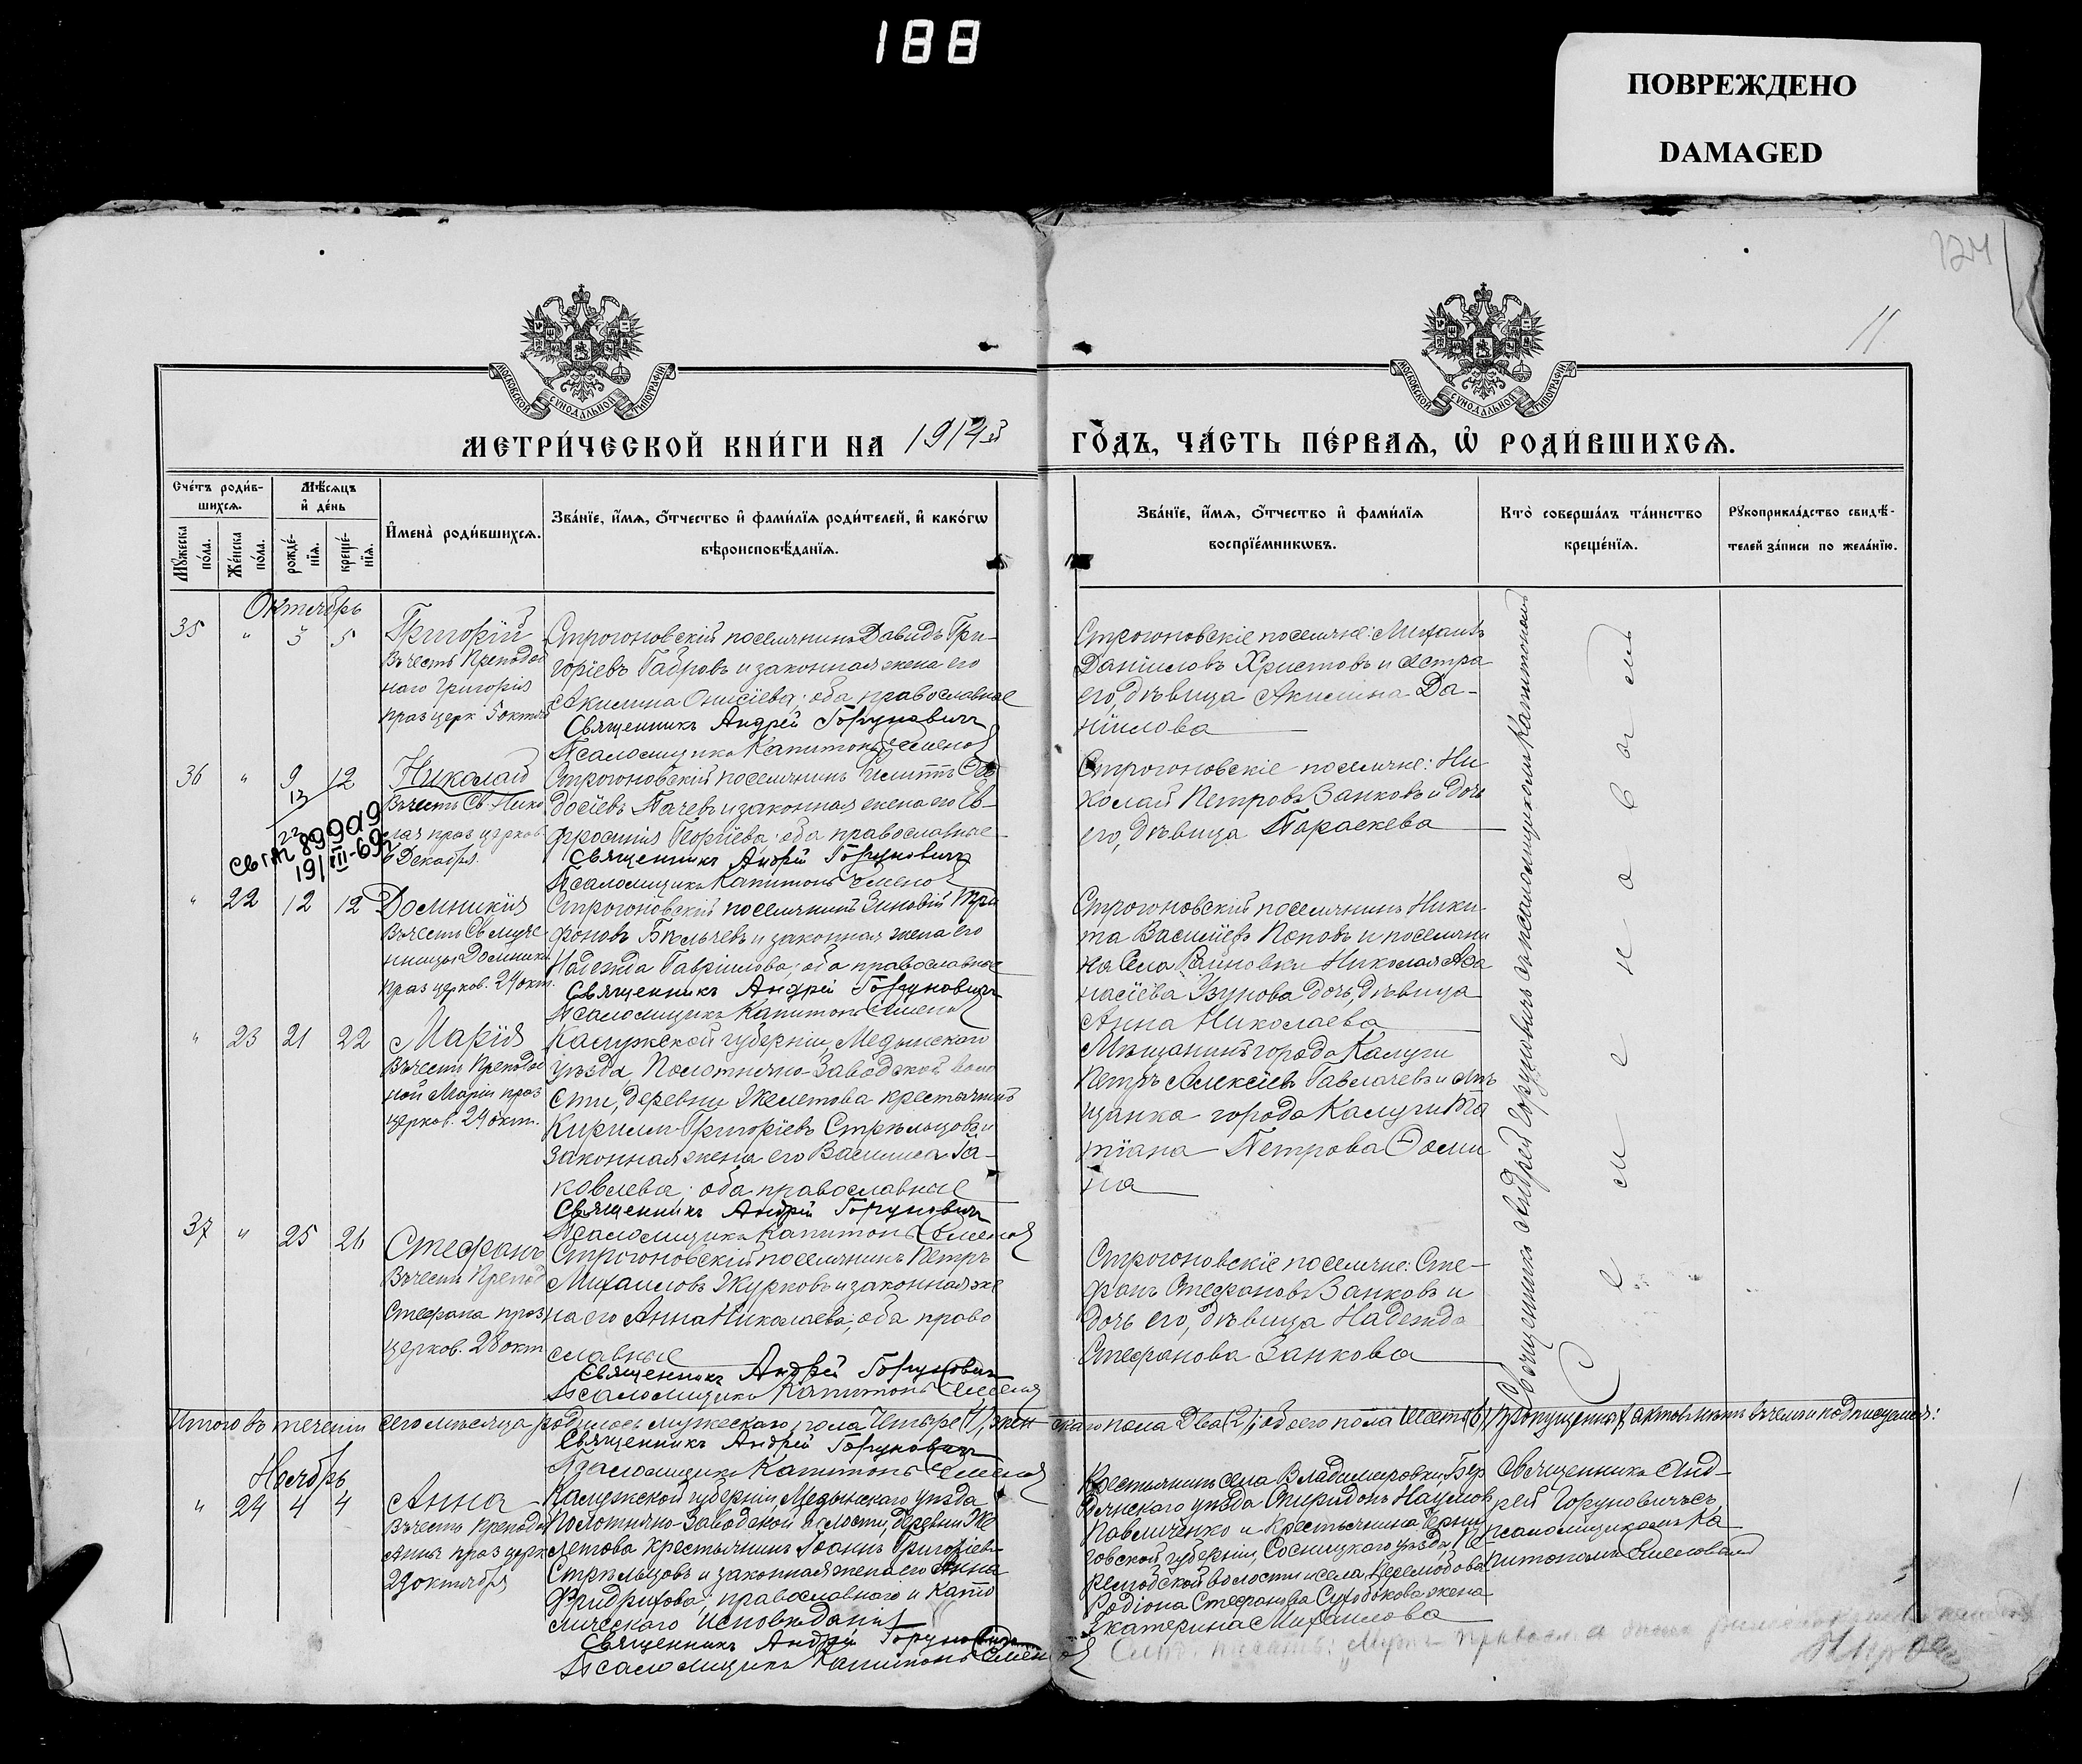 188
ПОВРЕЖДЕНО
DAMAGED
124
11
МОСКОВСКОЙ СѴНОДАЛЬНОЙ ТИПОГРАФІИ
МОСКОВСКОЙ СѴНОДАЛЬНОЙ ТИПОГРАФІИ
МЕТРИ́ЧЕСКОЙ КНИ́ГИ НА 1914й
ГО́ДЪ, ЧА́СТЬ ПЕ́РВАѦ, Ѡ҆ РОДИ́ВШИХСѦ.
Сче́тъ роди́в-
шихсѧ.
Мꙋ́жеска по́ла.
Же́нска по́ла.
Мѣ́сѧцъ
и҆ де́нь
рожде́-
нїѧ.
креще́-
нїѧ.
И҆мена̀ роди́вшихсѧ.
Зва́нїе, и҆́мѧ, ѻ҆́тчество и҆ фами́лїѧ роди́телей, и҆ како́гѡ
вѣроисповѣ́данїѧ.
Зва́нїе, и҆́мѧ, ѻ҆́тчество и҆ фами́лїѧ
воспрїе́мникѡвъ.
Кто̀ соверша́лъ та́инство
креще́нїѧ.
Рꙋкоприкла́дство свидѣ́-
телей за́писи по жела́нїю.
Октябрь
35 " 5 5
Григорій
Въ честь Преподоб
наго Григорія
праз церк 5 октяб
Строгоновскій поселянинъ Давидъ Гри-
горіевъ Габровъ и законная жена его
Акилина Онисіева; оба православные
Священникъ Андрей Горуновичъ
Псаломщикъ Капитонъ Семенов
Строгоновскіе поселяне: Михаилъ
Даніиловъ Христовъ и сестра
его, дѣвица Акилина Да-
ніилова
36 " 9 12
13
Николай
Въ честь Св. Нико
лая праз церков.
6 Декабря.
89909
19/III-69
Строгоновскій поселянинъ Филиппъ Ѳео
досіевъ Пачевъ и законная жена его Ев-
фросинія Георгіева; оба православные
Священникъ Андрей Горуновичъ
Псаломщикъ Капитонъ Семенов
Строгоновскіе поселяне: Ни
колай Петровъ Занковъ и дочь
его, дѣвица Параскева
" 22 12 12
Домникія
Въ честь Св. муче-
ницы Домники
Праз церков. 24 окт.
Строгоновскій поселянинъ Зиновій Три
фоновъ Бѣльчевъ и законная жена его
Надежда Гавріилова; оба православные
Священникъ Андрей Горуновичъ
Псаломщикъ Капитонъ Семенов
Строгоновскій поселянинъ Ники-
та Василіевъ Поповъ и поселяни
на села Райновки Николая Аѳа
насіева Узунова дочь, дѣвица
Анна Николаева
" 23 21 22
Марія
Въ честь Преподоб
ной Маріи праз
церков. 29 окт.
Калужской губерніи, Медынскаго
уѣзда, Полотняно-Заводской воло
сти, деревни Жлетова крестьянинъ
Кириллъ Григоріевъ Стрѣльцовъ и
законная жена его Василиса Іа-
ковлева; оба православные
Священникъ Андрей Горуновичъ
Псаломщикъ Капитонъ Семенов
Мѣщанинъ города Калуги
Петръ Алексіевъ Гавлачевъ и мѣ
щанка города Калуги Та
тіана Петрова Ѳоми
на
37 " 25 26
Стефанъ
Въ честь Препод
Стефана праз
церков. 28 окт
Строгоновскій поселянинъ Петръ
Михаиловъ Журковъ и законная же
на его Анна Николаева; оба право
славные
Священникъ Андрей Горунович
Псаломщикъ Капитонъ Семенов
Строгоновскіе поселяне: Сте-
фанъ Стефановъ Занковъ и
дочь его, дѣвица Надежда
Стефанова Занкова
Священникъ Андрей Горуновичъ съ псаломщикомъ Капитономъ
Семеновымъ
Итого въ теченіи сего мѣсяца родилось мужескаго пола Четыре (4), жен-
скаго пола Два (2), обоего пола Шесть (6). Пропущенныхъ актовъ нѣтъ въ чемъ и подписуемся:
Священникъ Андрей Горунович
Псаломщикъ Капитонъ Семенов
Ноябрь
" 24 4 4
Анна
Въ честь преподоб
Анны праз церк
29 октября
Калужской губерніи, Медынскаго уѣзда
Полотняно-Заводской волости, деревни Же
летова крестьянинъ Іоаннъ Григоріевъ
Стрѣльцовъ и законная жена его Анна
Фридрихова; православнаго и Като
лическаго исповѣданія
Священникъ Андрей Горунович
Псаломщикъ Капитонъ Семенов
Крестьянинъ села Владимировки, Бер
дянскаго уѣзда Спиридонъ Наумовъ
Павличенко и крестьянина Черни
говской губерніи, Сосницкаго уѣзда,
волости и села
Родіона Стефанова Сухобокова жена
Екатерина Михаилова
Священникъ Анд-
рей Горуновичъ съ
псаломщикомъ Ка
питономъ Семеновымъ